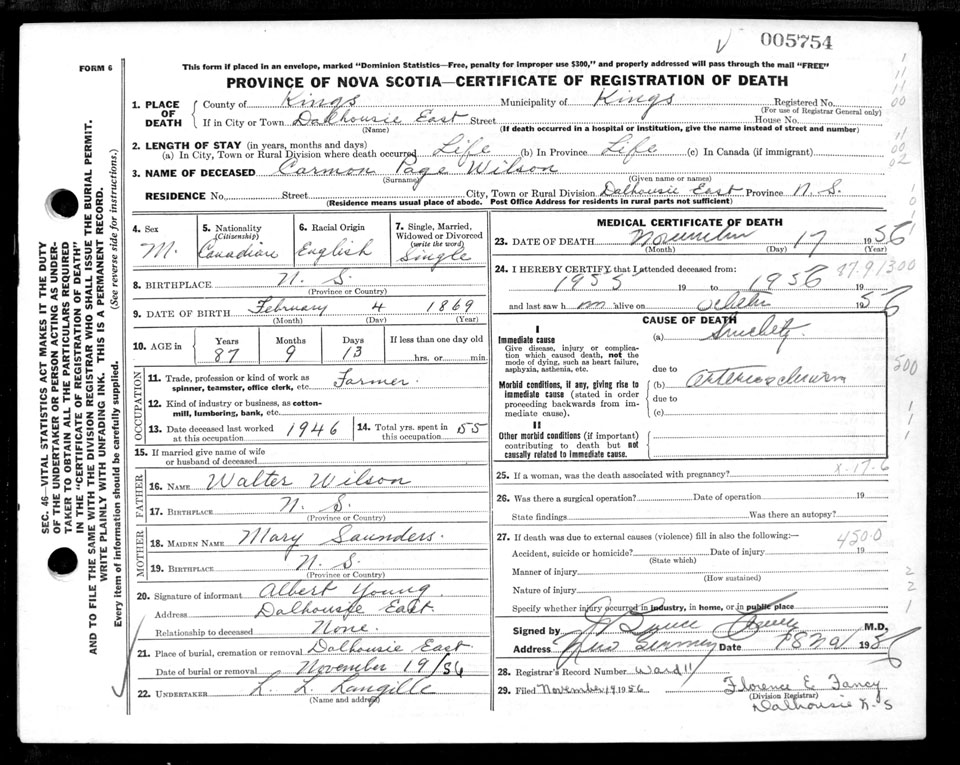 005754
FORM 6
This form if placed in an envelope, marked "Dominion Statistics—Free, penalty for improper use $300," and properly addressed will pass through the mail "FREE"
PROVINCE OF NOVA SCOTIA—CERTIFICATE OF REGISTRATION OF DEATH
1. PLACE OF DEATH
County of Kings Municipality of Kings Registered No.
(For use of Registrar General only)
If in City or Town Dalhousie East Street House No.
(Name) (If death occurred in a hospital or institution, give the name instead of street and number)
2. LENGTH OF STAY (in years, months and days)
(a) In City, Town or Rural Division where death occurred Life (b) In Province Life (c) In Canada (if immigrant)
3. NAME OF DECEASED Carmon Page Wilson
(Surname) (Given name or names)
RESIDENCE No. Street City, Town or Rural Division Dalhousie East Province N. S.
(Residence means usual place of abode. Post Office Address for residents in rural parts not sufficient)
SEC. 46—VITAL STATISTICS ACT MAKES IT THE DUTY
OF THE UNDERTAKER OR PERSON ACTING AS UNDER-
TAKER TO OBTAIN ALL THE PARTICULARS REQUIRED
IN THE "CERTIFICATE OF REGISTRATION OF DEATH"
AND TO FILE THE SAME WITH THE DIVISION REGISTRAR WHO SHALL ISSUE THE BURIAL PERMIT.
WRITE PLAINLY WITH UNFADING INK. THIS IS A PERMANENT RECORD.
Every item of information should be carefully supplied. (See reverse side for instructions.)
4. Sex
M.
5. Nationality
(Citizenship)
Canadian
6. Racial Origin
English
7. Single, Married,
Widowed or Divorced
(write the word)
Single
8. BIRTHPLACE N. S.
(Province or Country)
9. DATE OF BIRTH February 4 1869
(Month) (Day) (Year)
10. AGE in Years Months Days If less than one day old
87 9 13 hrs. or min.
OCCUPATION
11. Trade, profession or kind of work as
spinner, teamster, office clerk, etc. Farmer.
12. Kind of industry or business, as cotton-
mill, lumbering, bank, etc.
13. Date deceased last worked
at this occupation 1946
14. Total yrs. spent in
this occupation 55
15. If married give name of wife
or husband of deceased
FATHER
16. NAME Walter Wilson
17. BIRTHPLACE N. S.
(Province or Country)
MOTHER
18. MAIDEN NAME Mary Saunders.
19. BIRTHPLACE N. S.
(Province or Country)
20. Signature of informant Albert Young.
Address Dalhousie East.
Relationship to deceased None.
21. Place of burial, cremation or removal Dalhousie East
Date of burial or removal November 19/56
22. UNDERTAKER L. L. Langille
(Name and address)
MEDICAL CERTIFICATE OF DEATH
23. DATE OF DEATH November 17 1956
(Month) (Day) (Year)
24. I HEREBY CERTIFY that I attended deceased from:
1955 19 to 1956 19
and last saw h m alive on 1956
CAUSE OF DEATH
I
Immediate cause
Give disease, injury or complica-
tion which caused death, not the
mode of dying, such as heart failure,
asphyxia, asthenia, etc.
(a)
due to
Morbid conditions, if any, giving rise to
immediate cause (stated in order
proceeding backwards from im-
mediate cause).
(b)
due to
(c)
II
Other morbid conditions (if important)
contributing to death but not
causally related to immediate cause.
25. If a woman, was the death associated with pregnancy? X-17-6
26. Was there a surgical operation? Date of operation 19
State findings Was there an autopsy?
27. If death was due to external causes (violence) fill in also the following:— 450.0
Accident, suicide or homicide? Date of injury 19
(State which)
Manner of injury
(How sustained)
Nature of injury
Specify whether injury occurred in industry, in home, or in public place
Signed by M.D.
Address Date 1956
28. Registrar's Record Number Ward 11
29. Filed November 19 1956 Florence E Fancy
(Division Registrar)
Dalhousie N-S